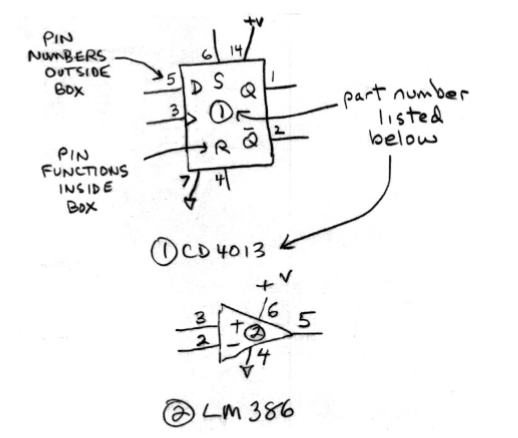 PIN
NUMBERS
OUTSIDE
BOX
+V
6 14
5 D S Q 1
3 1
R Q̅ 2
7 4
part number
listed
below
PIN
FUNCTIONS
INSIDE
BOX
① CD4013
+V
3 + ② 6 5
2 − 4
② LM386